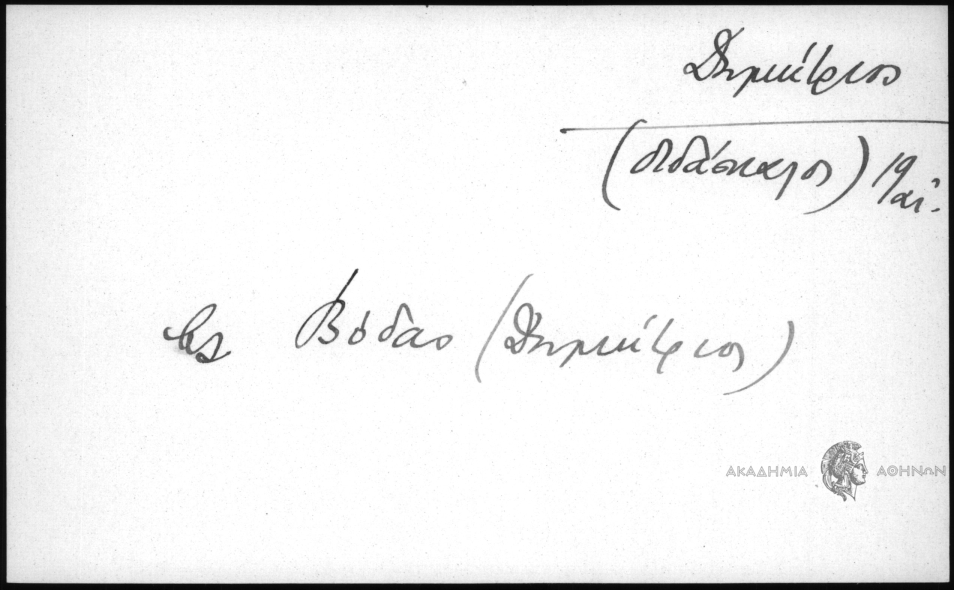 Δημήτριος
(διδάσκαλος) 19 αι.
Βόδας (Δημήτριος)
ΑΚΑΔΗΜΙΑ ΑΘΗΝΩΝ